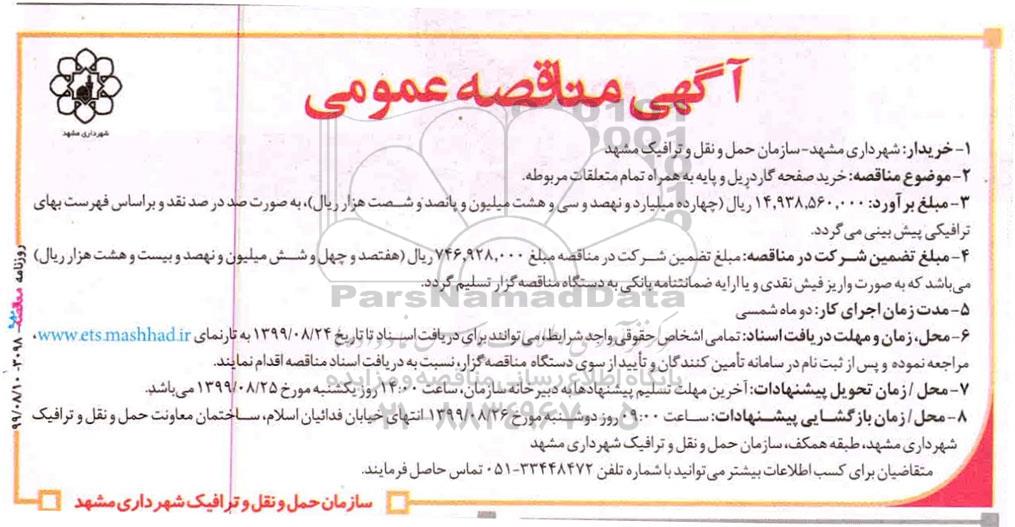 آگهی مناقصه عمومی
شهرداری مشهد
۱- خریدار: شهرداری مشهد- سازمان حمل و نقل و ترافیک مشهد
۲- موضوع مناقصه: خرید صفحه گاردریل و پایه به همراه تمام متعلقات مربوطه.
۳- مبلغ برآورد: ۱۴,۹۳۸,۵۶۰,۰۰۰ ریال (چهارده میلیارد و نهصد و سی و هشت میلیون و پانصد و شصت هزار ریال)، به صورت صد در صد نقد و براساس فهرست بهای
ترافیکی پیش بینی می گردد.
۴- مبلغ تضمین شرکت در مناقصه: مبلغ تضمین شرکت در مناقصه مبلغ ۷۴۶,۹۲۸,۰۰۰ ریال (هفتصد و چهل و شش میلیون و نهصد و بیست و هشت هزار ریال)
می باشد که به صورت واریز فیش نقدی و یا ارایه ضمانتنامه بانکی به دستگاه مناقصه گزار تسلیم گردد.
ParsNamadData
۵- مدت زمان اجرای کار: دو ماه شمسی
۶- محل، زمان و مهلت دریافت اسناد: تمامی اشخاص حقوقی واجد شرایط، می توانند برای دریافت اسناد تا تاریخ ۱۳۹۹/۰۸/۲۴ به تارنمای www.ets.mashhad.ir،
مراجعه نموده و پس از ثبت نام در سامانه تأمین کنندگان و تأیید از سوی دستگاه مناقصه گزار، نسبت به دریافت اسناد مناقصه اقدام نمایند.
پایگاه اطلاع رسانی مناقصه و مزایده
۷- محل / زمان تحویل پیشنهادات: آخرین مهلت تسلیم پیشنهادها به دبیرخانه سازمان، ساعت ۱۴:۰۰ روز یکشنبه مورخ ۱۳۹۹/۰۸/۲۵ می باشد.
۰۲۱-۸۸۳۴۹۶۷۰-۵
۸- محل / زمان بازگشایی پیشنهادات: ساعت ۰۹:۰۰ روز دوشنبه مورخ ۱۳۹۹/۰۸/۲۶ انتهای خیابان فدائیان اسلام، ساختمان معاونت حمل و نقل و ترافیک
شهرداری مشهد، طبقه همکف، سازمان حمل و نقل و ترافیک شهرداری مشهد
متقاضیان برای کسب اطلاعات بیشتر می توانید با شماره تلفن ۳۳۴۴۸۴۷۲-۰۵۱ تماس حاصل فرمایند.
سازمان حمل و نقل و ترافیک شهرداری مشهد
روزنامه مناقصه ۳۰۹۸ - ۹۹/۰۸/۱۰